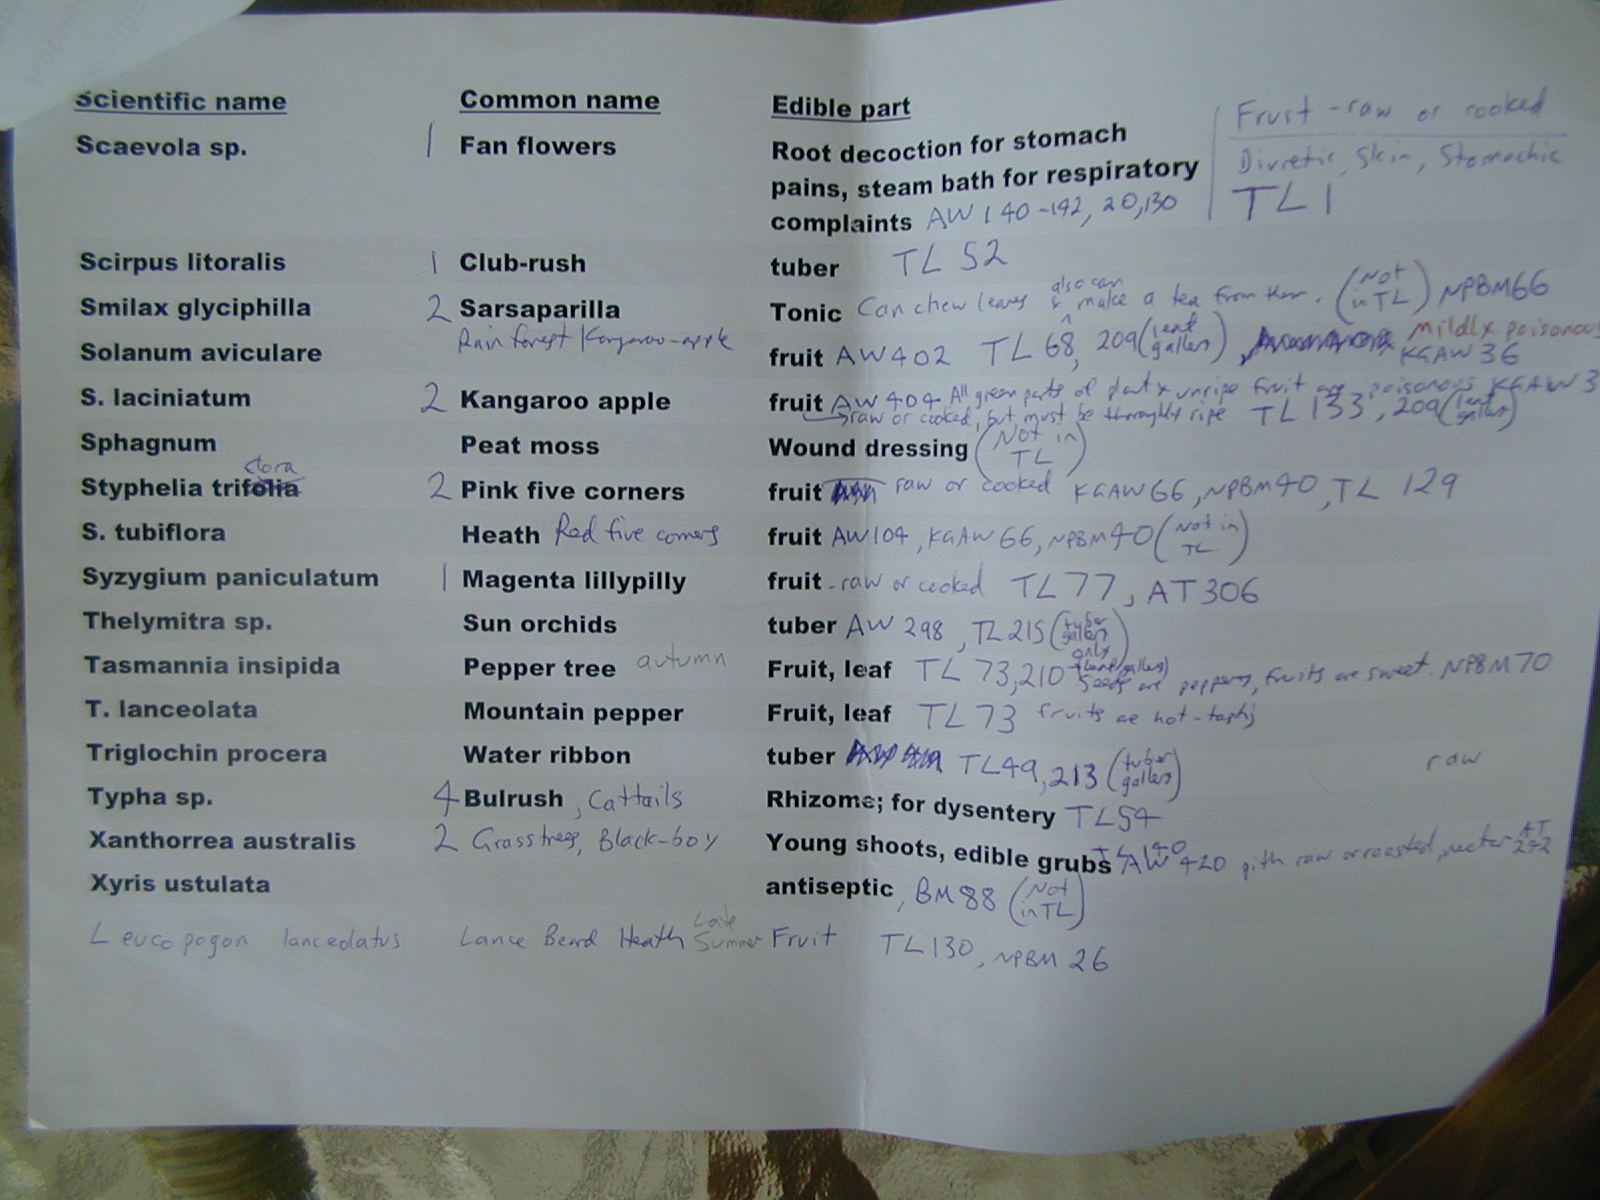 Scientific name Common name Edible part Fruit - raw or cooked
Scaevola sp. 1 Fan flowers Root decoction for stomach Diuretic, Skin, Stomachic
pains, steam bath for respiratory TL1
complaints AW 140-142, 20, 130
Scirpus litoralis 1 Club-rush tuber TL 52
Smilax glyciphilla 2 Sarsaparilla Tonic Can chew leaves & also can make a tea from them. (Not in TL) NPBM66
Rain forest Kangaroo-apple
Solanum aviculare fruit AW402 TL 68, 209 (leaf gallers) Mildly poisonous KGAW 36
S. laciniatum 2 Kangaroo apple fruit AW 404 All green parts of plant & unripe fruit are poisonous KGAW 3
raw or cooked, but must be thoroughly ripe TL 133, 209 (leaf gallers)
Sphagnum Peat moss Wound dressing (Not in TL)
Styphelia trifolia flora 2 Pink five corners fruit raw or cooked KGAW66, NPBM40, TL 129
S. tubiflora Heath Red five corners fruit AW104, KGAW 66, NPBM40 (Not in TL)
Syzygium paniculatum 1 Magenta lillypilly fruit - raw or cooked TL 77, AT 306
Thelymitra sp. Sun orchids tuber AW 298, TL 215 (tuber gallers only)
Tasmannia insipida Pepper tree autumn Fruit, leaf TL 73, 210 (leaf gallers) Seeds are peppery, fruits are sweet. NPBM70
T. lanceolata Mountain pepper Fruit, leaf TL 73 fruits are hot-tasting
Triglochin procera Water ribbon tuber TL49, 213 (tuber gallers) raw
Typha sp. 4 Bulrush, Cattails Rhizome; for dysentery TL54
Xanthorrea australis 2 Grasstrees, Black-boy Young shoots, edible grubs TL 140 AW 420 pith raw or roasted, nectar AT 242
Xyris ustulata antiseptic, BM88 (Not in TL)
Leucopogon lanceolatus Lance Beard Heath Late Summer Fruit TL130, NPBM 26